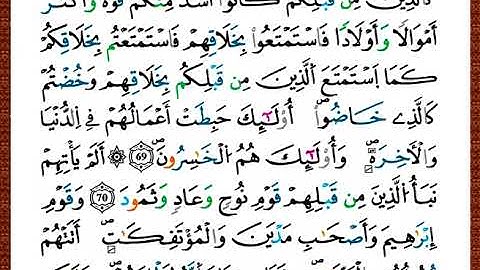 كَالَّذِينَ مِن قَبْلِكُمْ كَانُوٓا۟ أَشَدَّ مِنكُمْ قُوَّةً وَأَكْثَرَ
أَمْوَٰلًا وَأَوْلَٰدًا فَاسْتَمْتَعُوا۟ بِخَلَٰقِهِمْ فَاسْتَمْتَعْتُم بِخَلَٰقِكُمْ
كَمَا اَسْتَمْتَعَ اَلَّذِينَ مِن قَبْلِكُم بِخَلَٰقِهِمْ وَخُضْتُمْ
كَالَّذِے خَاضُوٓا۟ أُوْلَٰٓئِكَ حَبِطَتْ أَعْمَٰلُهُمْ فِے اِلدُّنْيَا
وَالْأَخِرَةِ وَأُوْلَٰٓئِكَ هُمُ اُلْخَٰسِرُونَ 69 ۞ أَلَمْ يَأْتِهِمْ
نَبَأُ اُلَّذِينَ مِن قَبْلِهِمْ قَوْمِ نُوحٍ وَعَادٍ وَثَمُودَ 70 وَقَوْمِ
إِبْرَٰهِيمَ وَأَصْحَٰبِ مَدْيَنَ وَالْمُؤْتَفِكَٰتِ أَتَتْهُمْ